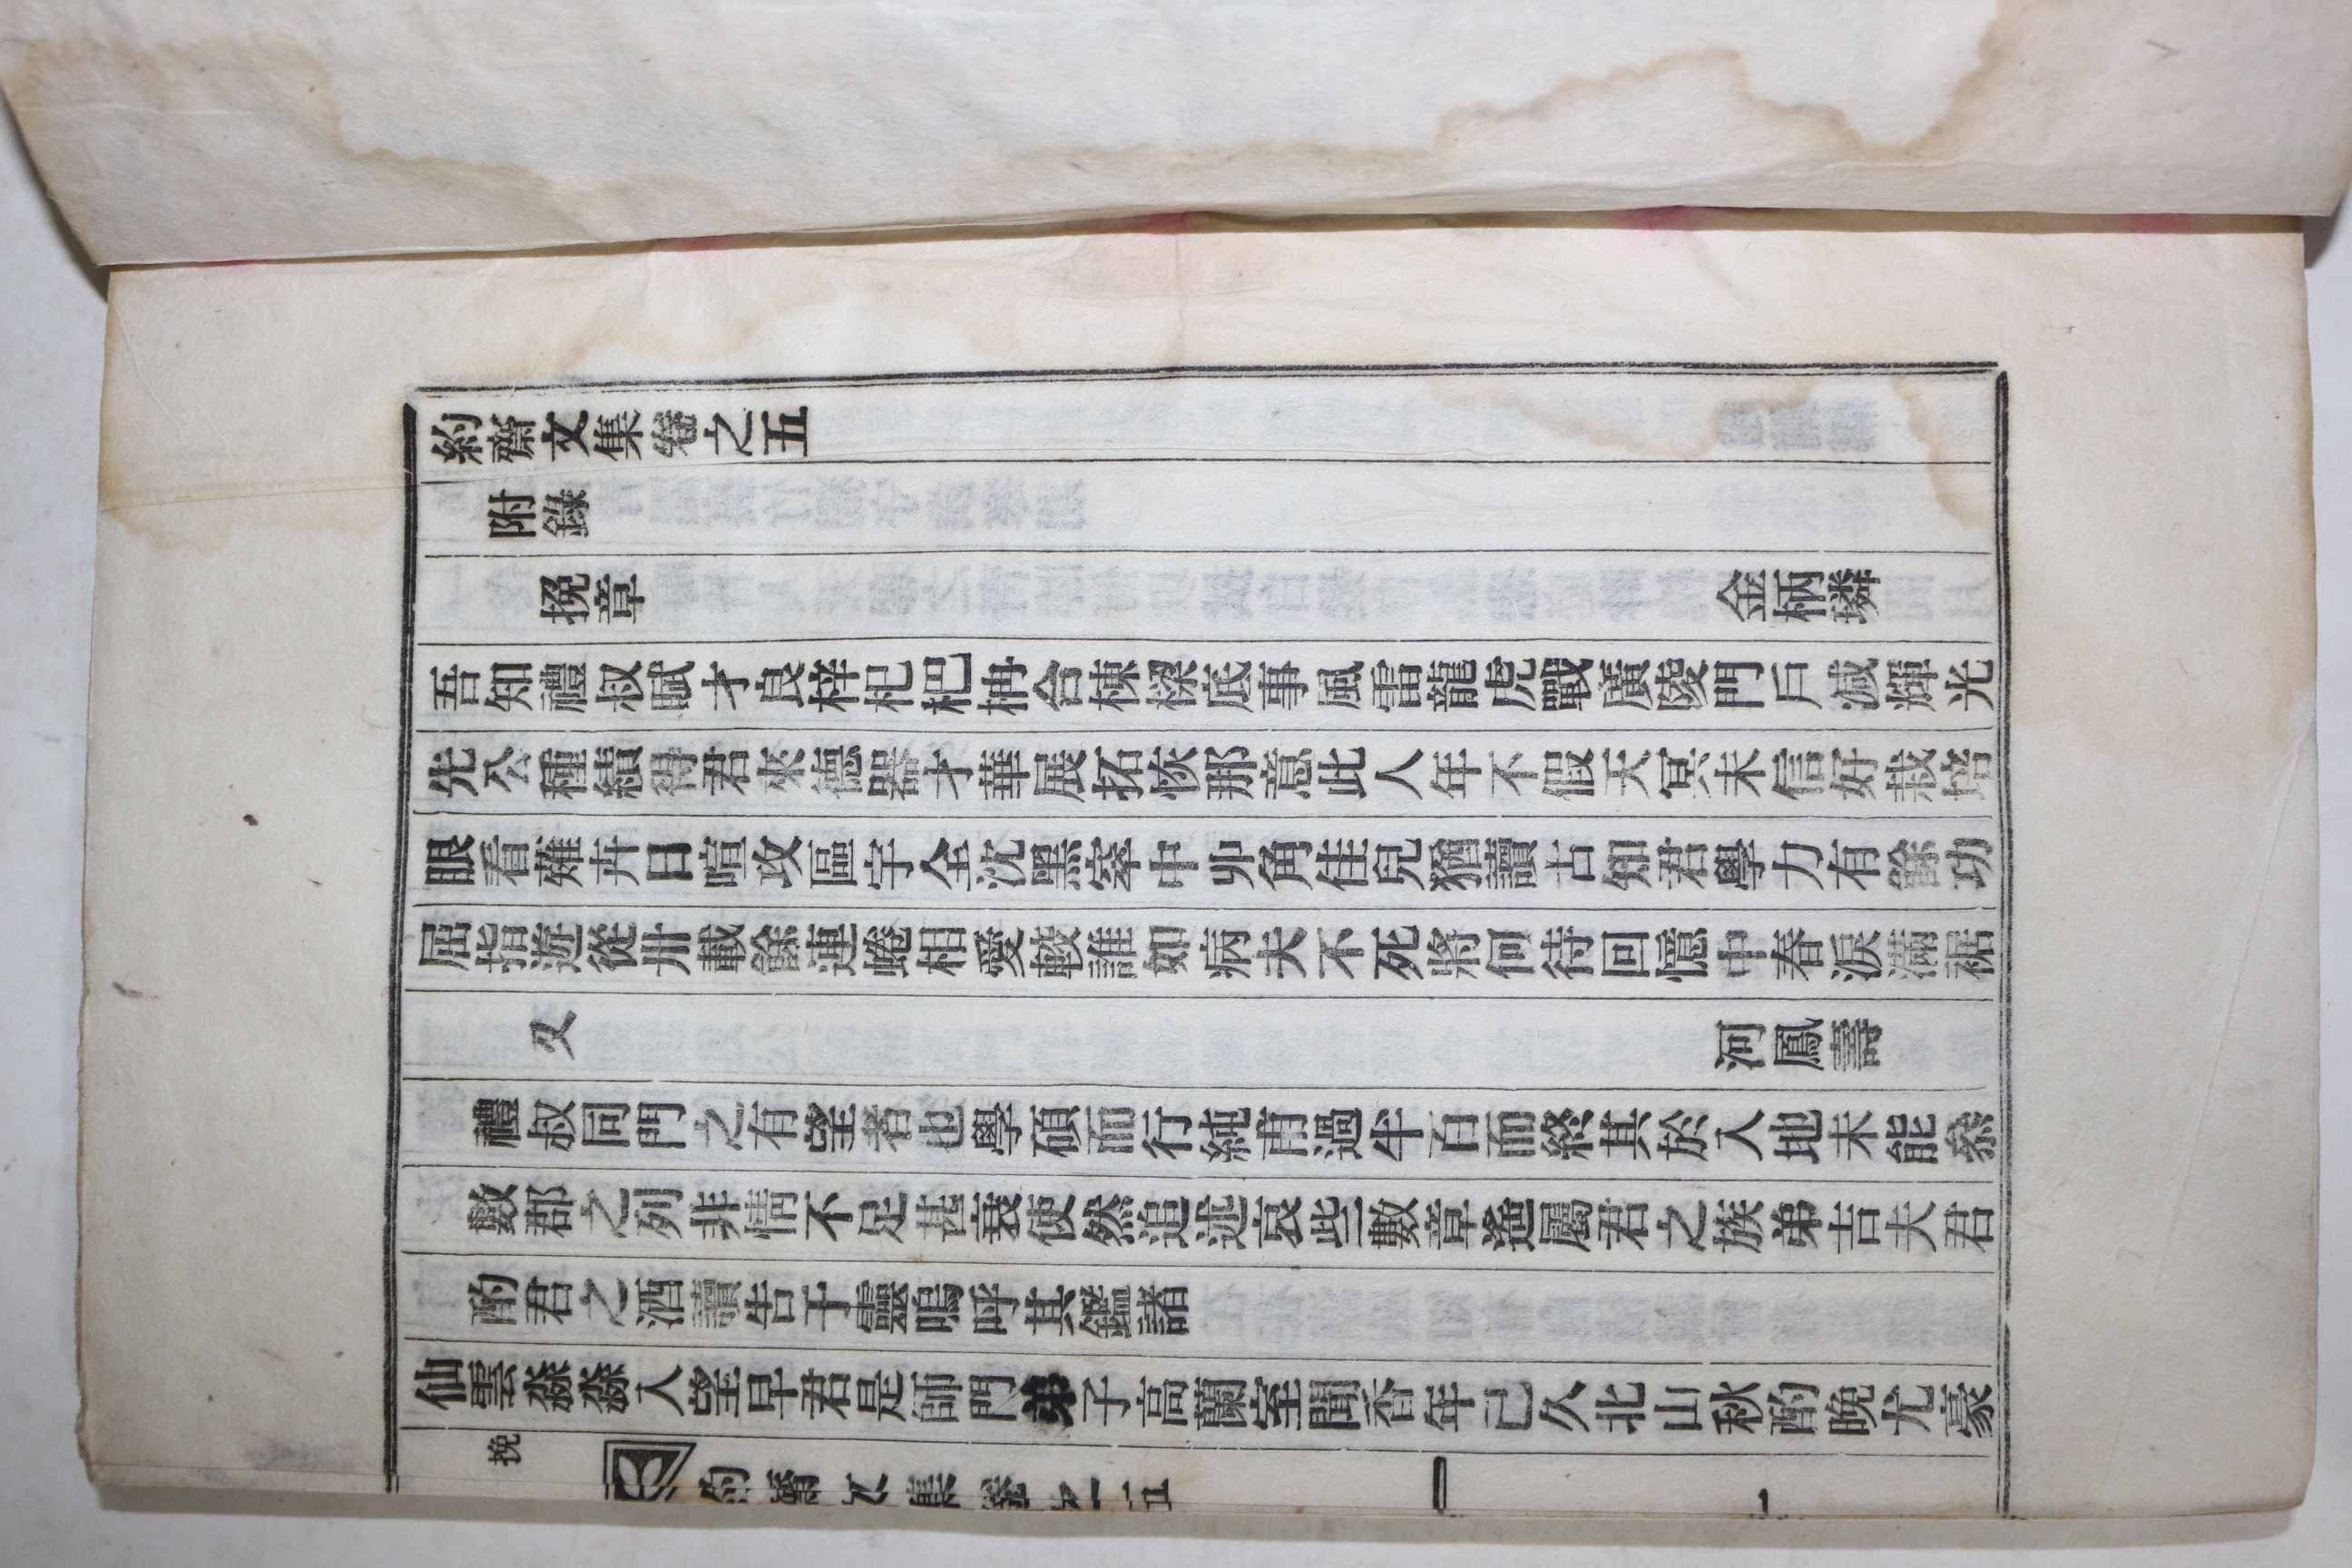 約齋文集卷之五
附錄
挽章 金柄璘
吾知禮叔賦才良梓杞杷枏合棟樑底事風雷龍虎戰廣陵門戶減輝光
先公種績得君來德器才華展拓恢那意此人年不假天冥未信好栽培
眼看難弁日喧攻區宇全沈黑窣中丱角佳兒猶讀古知君學力有餘功
屈指遊從卅載餘連蜷相愛較誰如病夫不死將何待回憶中春淚滿裾
又 河鳳壽
禮叔同門之有望者也學碩而行純肯過半百而終其於人地未能參
數郡之列非情不足甚衰使然追述哀些數章遙屬君之族弟吉夫君
酌君之酒讀告于靈嗚呼其鑑諸
仙雲淼淼人望早君是師門弟子高蘭室聞香年已久北山秋酌晩尤豪
挽
約齋文集卷之五 一